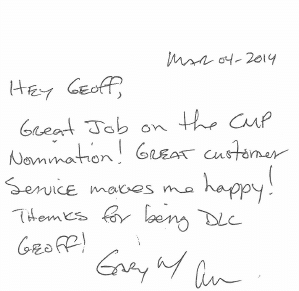 MAR 04-2014
HEY GEOFF,
GREAT JOB ON the CMP
NomiNatioN! GREAT customer
Service makes me happy!
THANKS for being DLC
GEOFF!